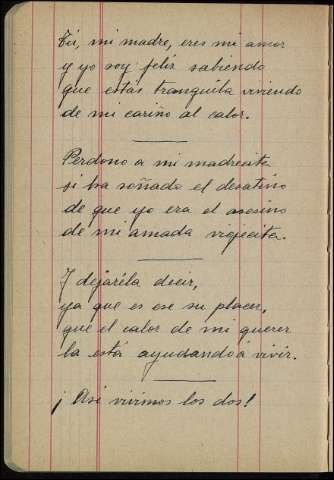 Tú, mi madre, eres mi amor
y yo soy feliz sabiendo
que estás tranquila viviendo
de mi cariño al calor.
Perdono a mi madrecita
si ha soñado el desatino
de que yo era el asesino
de mi amada viejecita.
Y dejaréla decir,
ya que es ese su placer,
que el calor de mi querer
la está ayudando á vivir.
¡Así vivimos los dos!